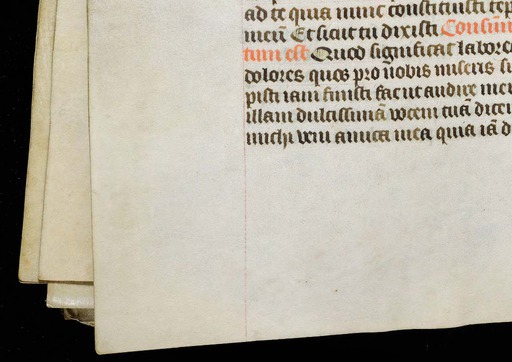 ad te quia nunc constituisti tep
meū Et sicut tu dixisti Consūm
tum est Quod significat labore
dolores quos pro nobis miseris su
pisti iam finisti fac ut audire mer
illam dulcissimā vocem tuā dicen
michi veni amica mea quia iā d